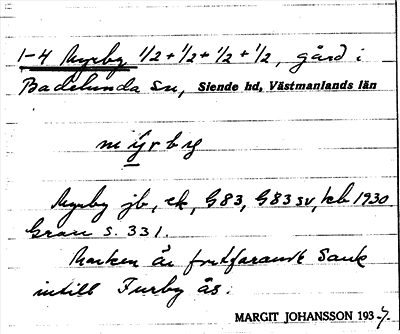 1-4 Myrby 1/2 + 1/2 + 1/2 + 1/2, gård i
Badelunda sn, Siende hd, Västmanlands län
Myrby jb, ek, G83, G83 sv, kb 1930.
Grau s. 331.
Marken är fortfarande sank
intill Furby ås.
MARGIT JOHANSSON 193-7.